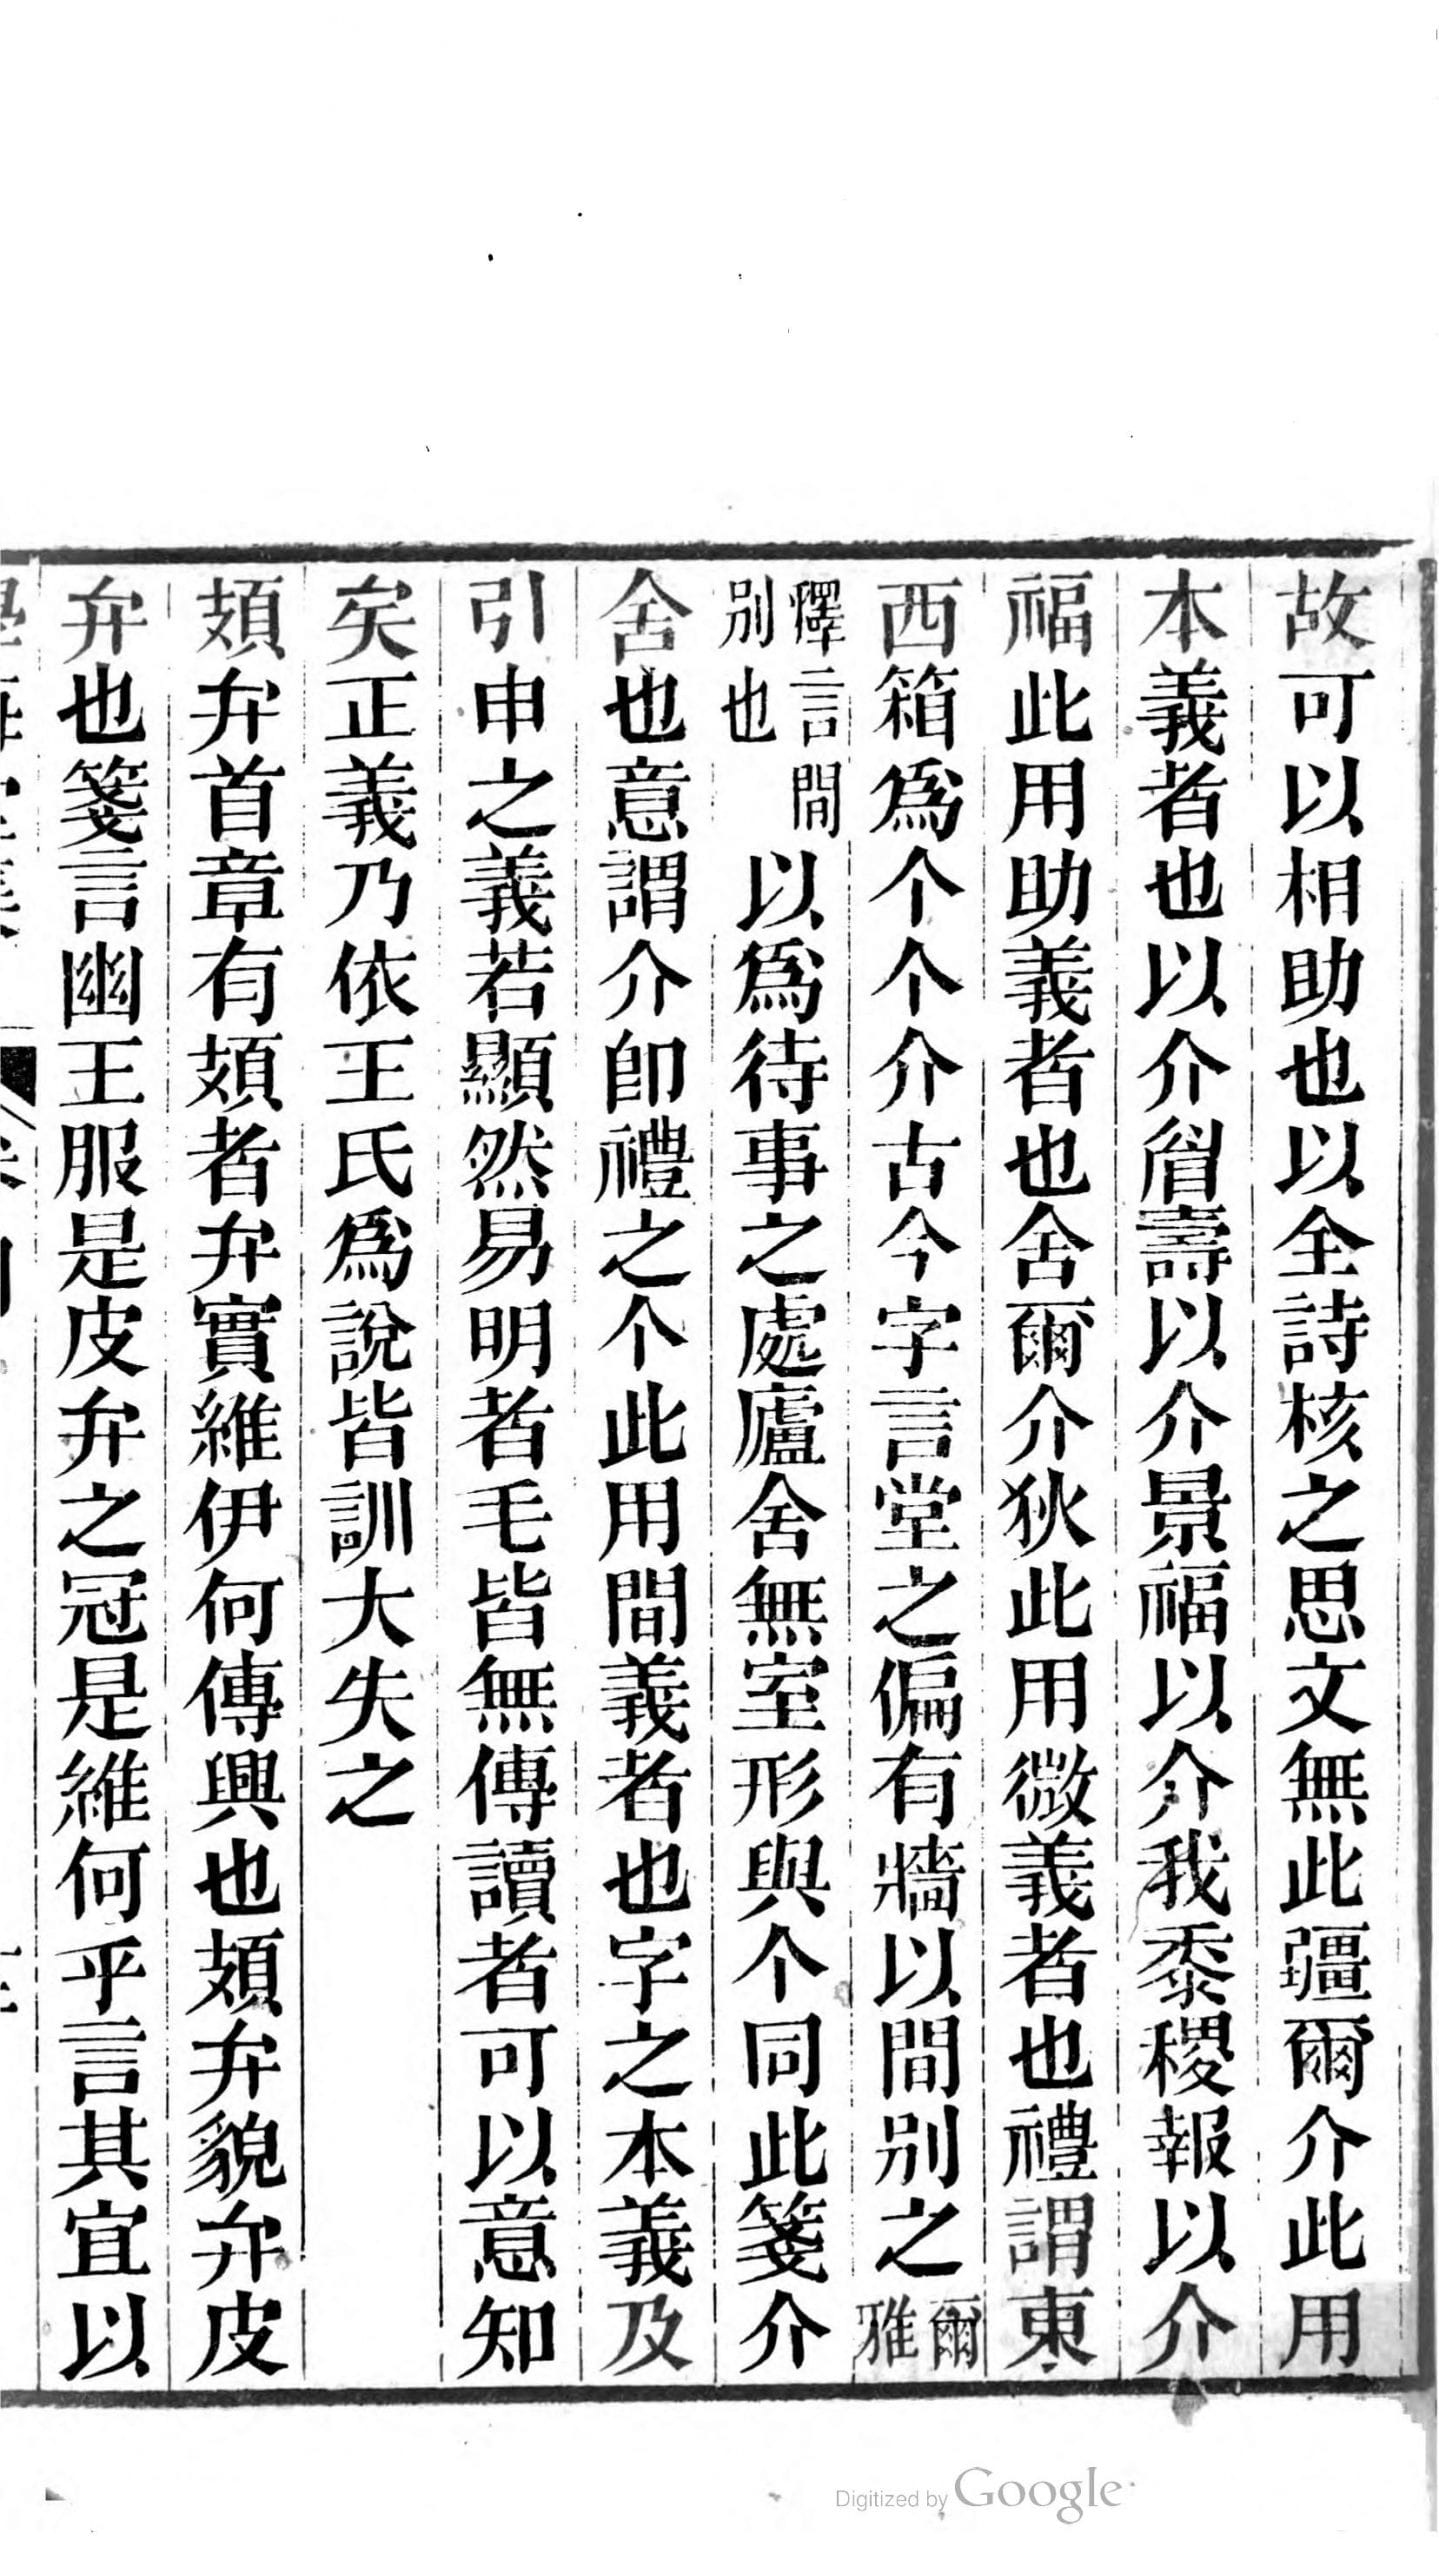 故可以相助也以全詩核之思文無此疆爾介此用
本義者也以介眉壽以介景福以介我黍稷報以介
福此用助義者也舍爾介狄此用微義者也禮謂東
西箱爲个个介古今字言堂之偏有牆以間別之爾雅
釋言間別也以爲待事之處廬舍無室形與个同此箋介
舍也意謂介卽禮之个此用間義者也字之本義及
引申之義若顯然易明者毛皆無傳讀者可以意知
矣正義乃依王氏爲說皆訓大失之
頍弁首章有頍者弁實維伊何傳興也頍弁貌弁皮
弁也箋言幽王服是皮弁之冠是維何乎言其宜以
Digitized by Google